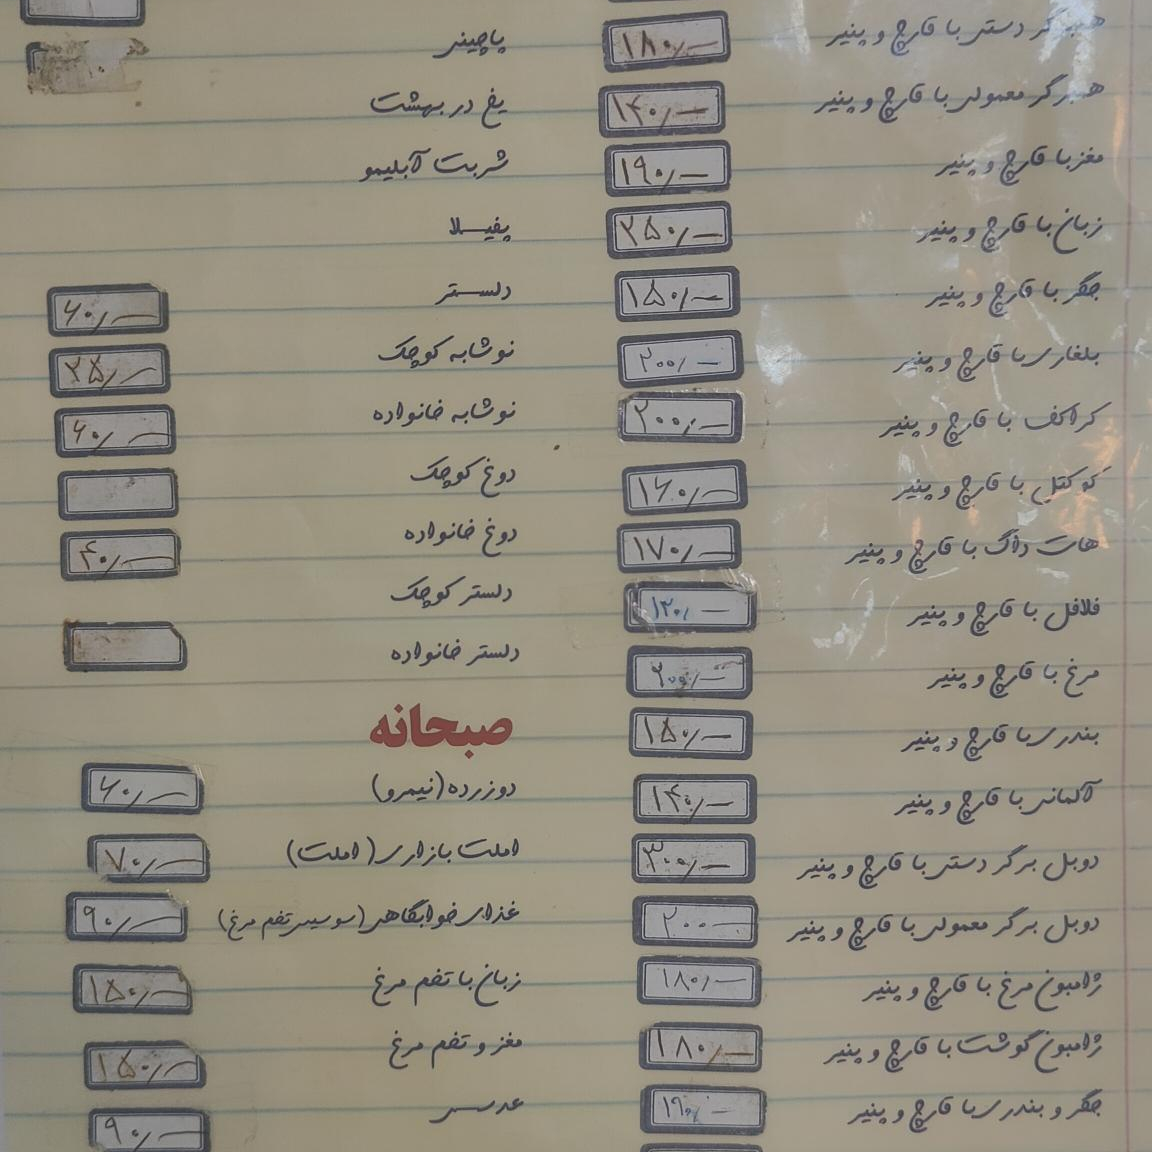 همبرگر دستی با قارچ و پنیر ۱۸۰/-
همبرگر معمولی با قارچ و پنیر ۱۴۰/-
مغز با قارچ و پنیر ۱۹۰/-
زبان با قارچ و پنیر ۲۵۰/-
جگر با قارچ و پنیر ۱۵۰/-
بلغاری با قارچ و پنیر ۲۰۰/-
کراکف با قارچ و پنیر ۲۰۰/-
کوکتل با قارچ و پنیر ۱۶۰/-
هات داگ با قارچ و پنیر ۱۷۰/-
فلافل با قارچ و پنیر ۱۲۰/-
مرغ با قارچ و پنیر ۲۰۰/-
بندری با قارچ و پنیر ۱۵۰/-
آلمانی با قارچ و پنیر ۱۴۰/-
دوبل برگر دستی با قارچ و پنیر ۳۰۰/-
دوبل برگر معمولی با قارچ و پنیر ۲۰۰-
ژامبون مرغ با قارچ و پنیر ۱۸۰/-
ژامبون گوشت با قارچ و پنیر ۱۸۰/-
جگر و بندری با قارچ و پنیر ۱۹۰/-
پاچینی
یخ در بهشت
شربت آبلیمو
پفیلا
دلستر ۶۰/-
نوشابه کوچک ۲۵/-
نوشابه خانواده ۶۰/-
دوغ کوچک
دوغ خانواده ۴۰/-
دلستر کوچک
دلستر خانواده
صبحانه
دوزرده (نیمرو) ۶۰/-
املت بازاری (املت) ۷۰/-
غذای خوابگاهی (سوسیس تخم مرغ) ۹۰/-
زبان با تخم مرغ ۱۵۰/-
مغز و تخم مرغ ۱۵۰/-
عدسی ۹۰/-